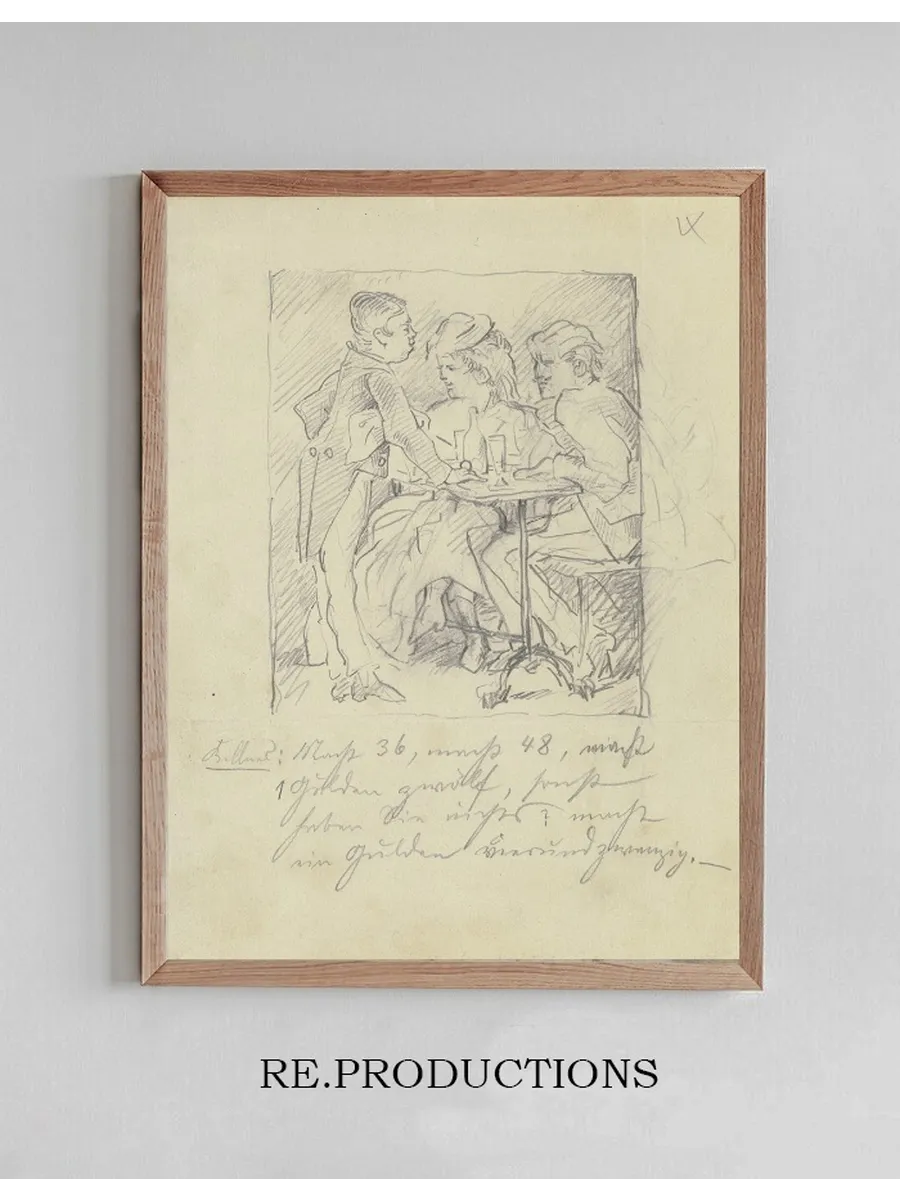 IX
Kellner: Macht 36, macht 48, macht
1 Gulden zwölf, sonst
haben Sie nichts? macht
ein Gulden vierundzwanzig.—
RE.PRODUCTIONS